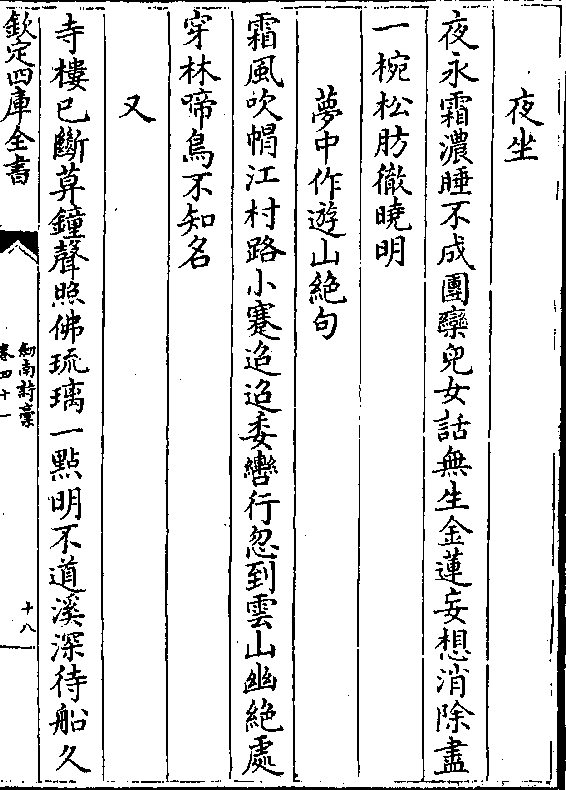 夜坐
夜永霜濃睡不成團欒兒女話無生金蓮妄想消除盡
一椀松肪徹曉明
夢中作遊山絶句
霜風吹帽江村路小蹇迢迢委轡行忽到雲山幽絶處
穿林啼鳥不知名
又
寺樓已斷莫鐘聲照佛琉璃一點明不道溪深待船久
欽定四庫全書
劒南詩藁
卷四十一
十八